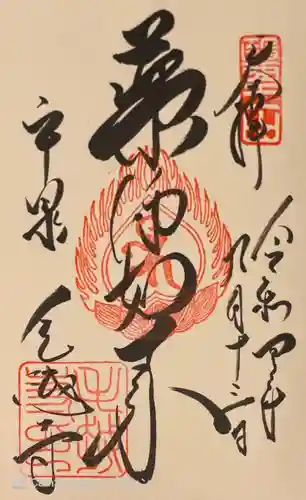 奉拝
令和四年
九月十二日
薬師如来
平泉
毛越寺